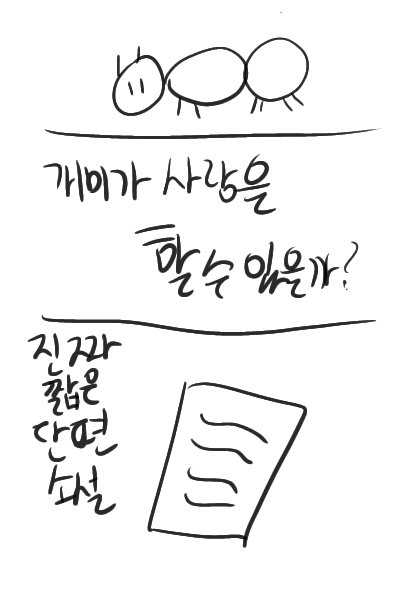 개미가 사랑을
할 수 있을까?
진짜
짧은
단편
소설